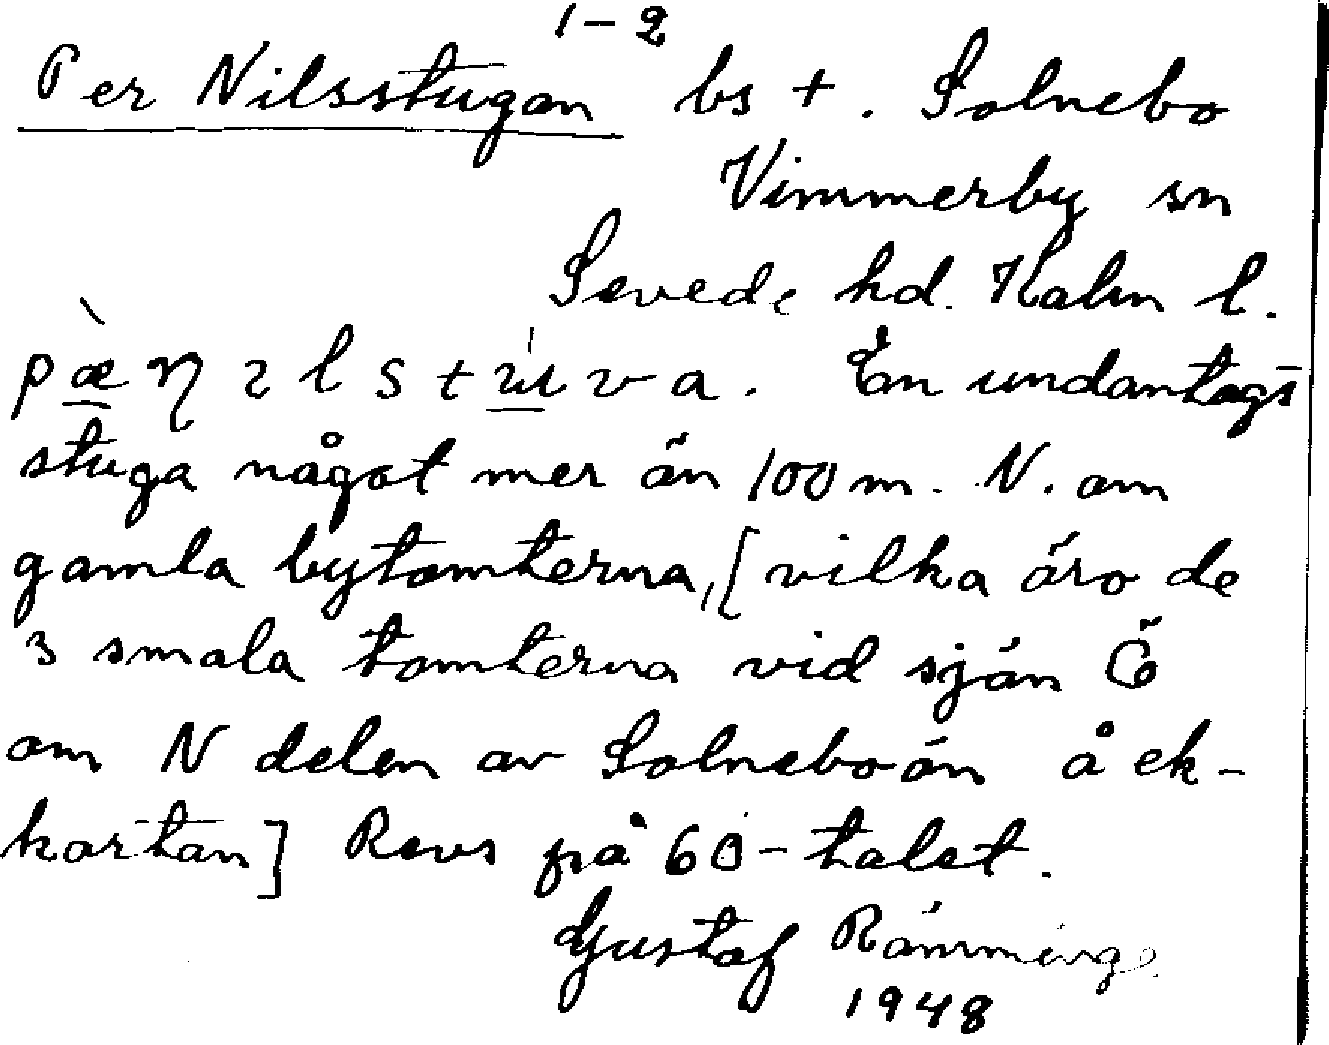 1-2
Per Nilsstugan bs +. Solnebo
Vimmerby sn
Sevede hd. Kalm l.
stuga något mer än 100 m. N. om
En undantags
gamla bytomterna, [vilka äro de
3 smala tomterna vid sjön Ö
om N delen av Solneboån å ek-
kartan] Revs på 60-talet.
Gustaf Rämminge
1948